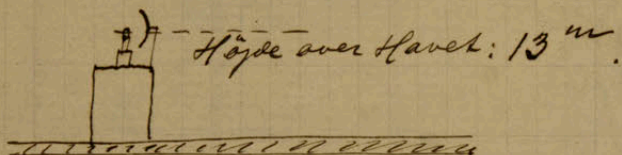 Höjde over Havet: 13 m.